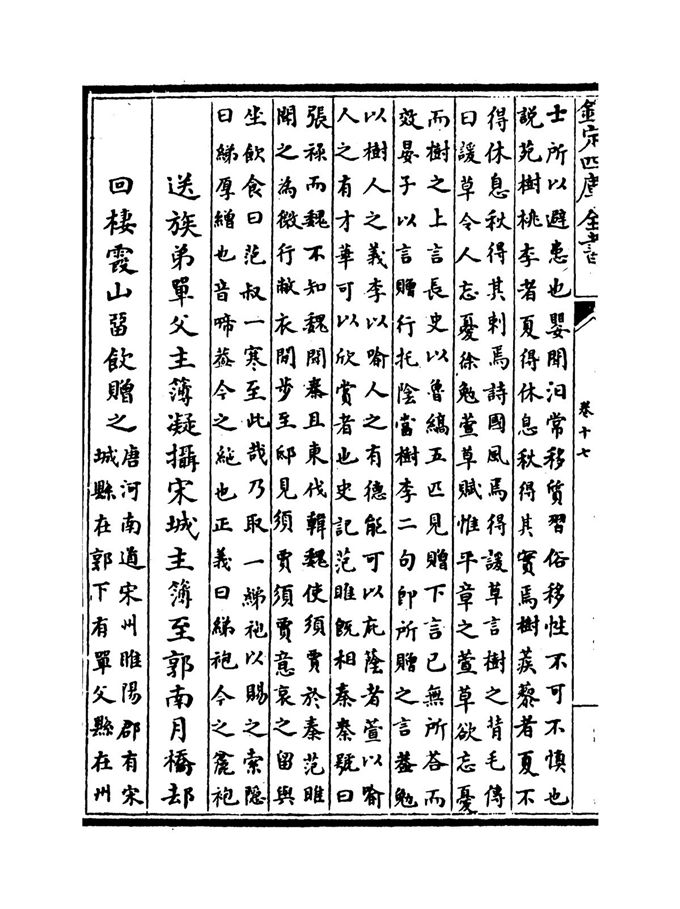 欽定四庫全書
卷十七
士所以避患也嬰聞汩常移質習俗移性不可不慎也
説苑樹桃李者夏得休息秋得其實焉樹蒺藜者夏不
得休息秋得其刺焉詩國風焉得諼草言樹之背毛傳
曰諼草令人忘憂徐勉萱草賦惟平章之萱草欲忘憂
而樹之上言長史以魯縞五匹見贈下言已無所答而
效晏子以言贈行托陰當樹李二句即所贈之言蓋勉
以樹人之義李以喻人之有德能可以庇蔭者萱以喻
人之有才華可以欣賞者也史記范睢既相秦秦號曰
張祿而魏不知魏聞秦且東伐韓魏使須賈於秦范睢
聞之為微行敝衣閒步至邸見須賈須賈意哀之留與
坐飲食曰范叔一寒至此哉乃取一綈袍以賜之索隱
曰綈厚繒也音啼葢今之絁也正義曰綈袍今之麄袍
送族弟單父主簿凝攝宋城主簿至郭南月橋却
回棲霞山留飲贈之
唐河南道宋州睢陽郡有宋
城縣在郭下有單父縣在州